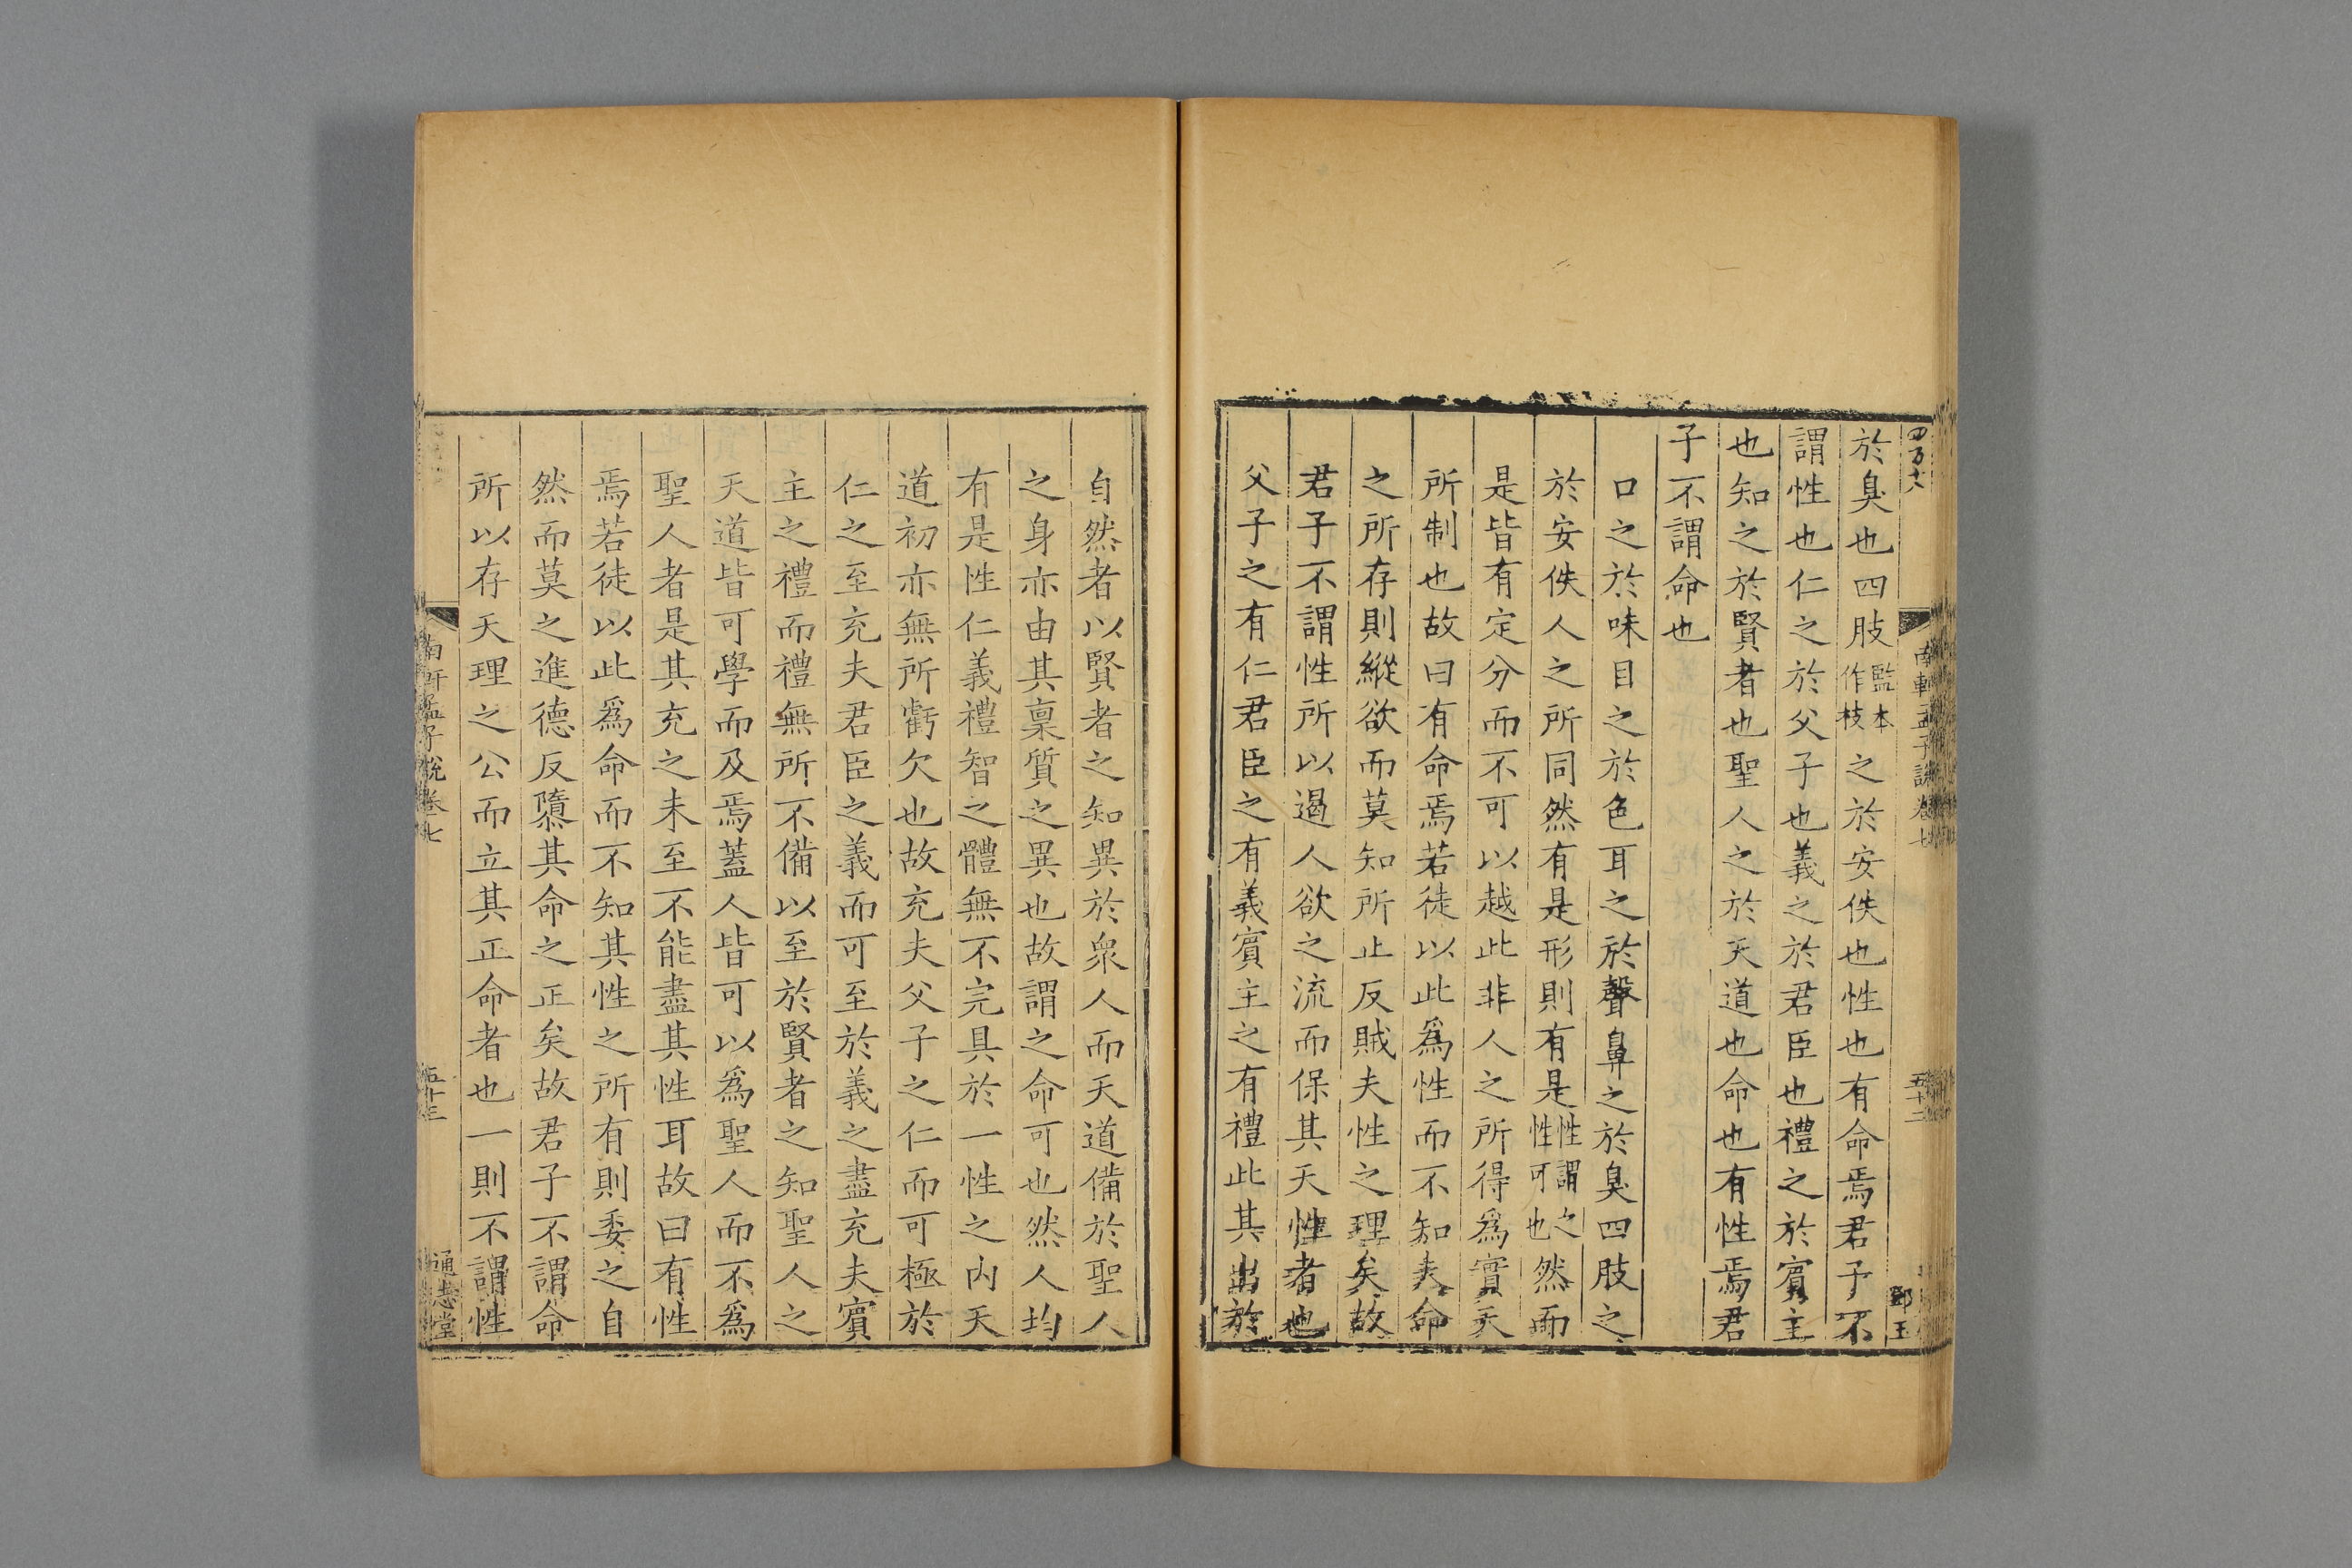 四百十八
南軒孟子說卷七
五十二
鄧玉
於臭也四肢監本作枝之於安佚也性也有命焉君子不
謂性也仁之於父子也義之於君臣也禮之於賓主
也知之於賢者也聖人之於天道也命也有性焉君
子不謂命也
口之於味目之於色耳之於聲鼻之於臭四肢之
於安佚人之所同然有是形則有是性謂之性可也然而
是皆有定分而不可以越此非人之所得爲實天
所制也故曰有命焉若徒以此爲性而不知夫命
之所存則縱欲而莫知所止反賊夫性之理矣故
君子不謂性所以遏人欲之流而保其天性者也
父子之有仁君臣之有義賓主之有禮此其出於
自然者以賢者之知異於衆人而天道備於聖人
之身亦由其稟質之異也故謂之命可也然人均
有是性仁義禮智之體無不完具於一性之內天
道初亦無所虧欠也故充夫父子之仁而可極於
仁之至充夫君臣之義而可至於義之盡充夫賓
主之禮而禮無所不備以至於賢者之知聖人之
天道皆可學而及焉蓋人皆可以爲聖人而不爲
聖人者是其充之未至不能盡其性耳故曰有性
焉若徒以此爲命而不知其性之所有則委之自
然而莫之進德反隳其命之正矣故君子不謂命
所以存天理之公而立其正命者也一則不謂性
南軒孟子說卷七
五十三
通志堂